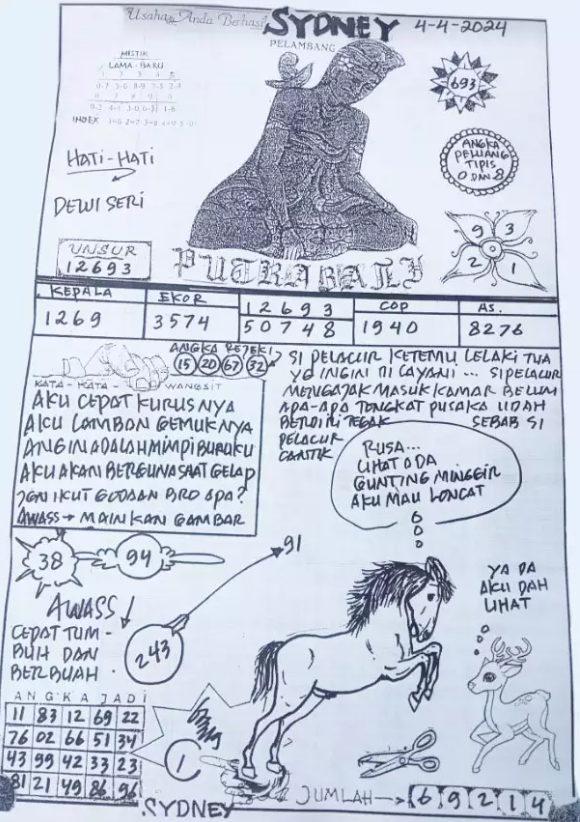 Usaha Anda Berhasil SYDNEY 4-4-2024
PELAMBANG
MISTIK
LAMA - BARU
INDEX
693
HATI-HATI
ANGKA
PELUANG
TIPIS
0 DAN 8
DEWI SERI
9 3
2 1
UNSUR
12693
PUTRA BALI
KEPALA EKOR 12693 COP AS.
1269 3574 50748 1940 8276
ANGKA REJEKI
15 20 67 32
KATA - KATA - WANGSIT
AKU CEPAT KURUSNYA
AKU LAMBAN GEMUKNYA
ANGIN ADALAH MIMPI BURUKU
AKU AKAN BERGUNA SAAT GELAP
JGN IKUT GODAAN BRO APA?
AWASS → MAINKAN GAMBAR
SI PELACUR KETEMU LELAKI TUA
YG INGIN DI LAYANI... SI PELACUR
MENGAJAK MASUK KAMAR BELUM
APA-APA TONGKAT PUSAKA UDAH
BERDIRI TEGAK SEBAB SI
PELACUR
CANTIK
RUSA...
LIHAT ADA
GUNTING MINGGIR
AKU MAU LONCAT
38 94
91
YA DA
AKU DAH
LIHAT
AWASS!
CEPAT TUM-
BUH DAN
BERBUAH.
243
ANGKA JADI
11 83 12 69 22
76 02 66 51 34
43 99 42 33 23
81 21 49 86 96
1
JUMLAH → 6 9 2 1 4
SYDNEY